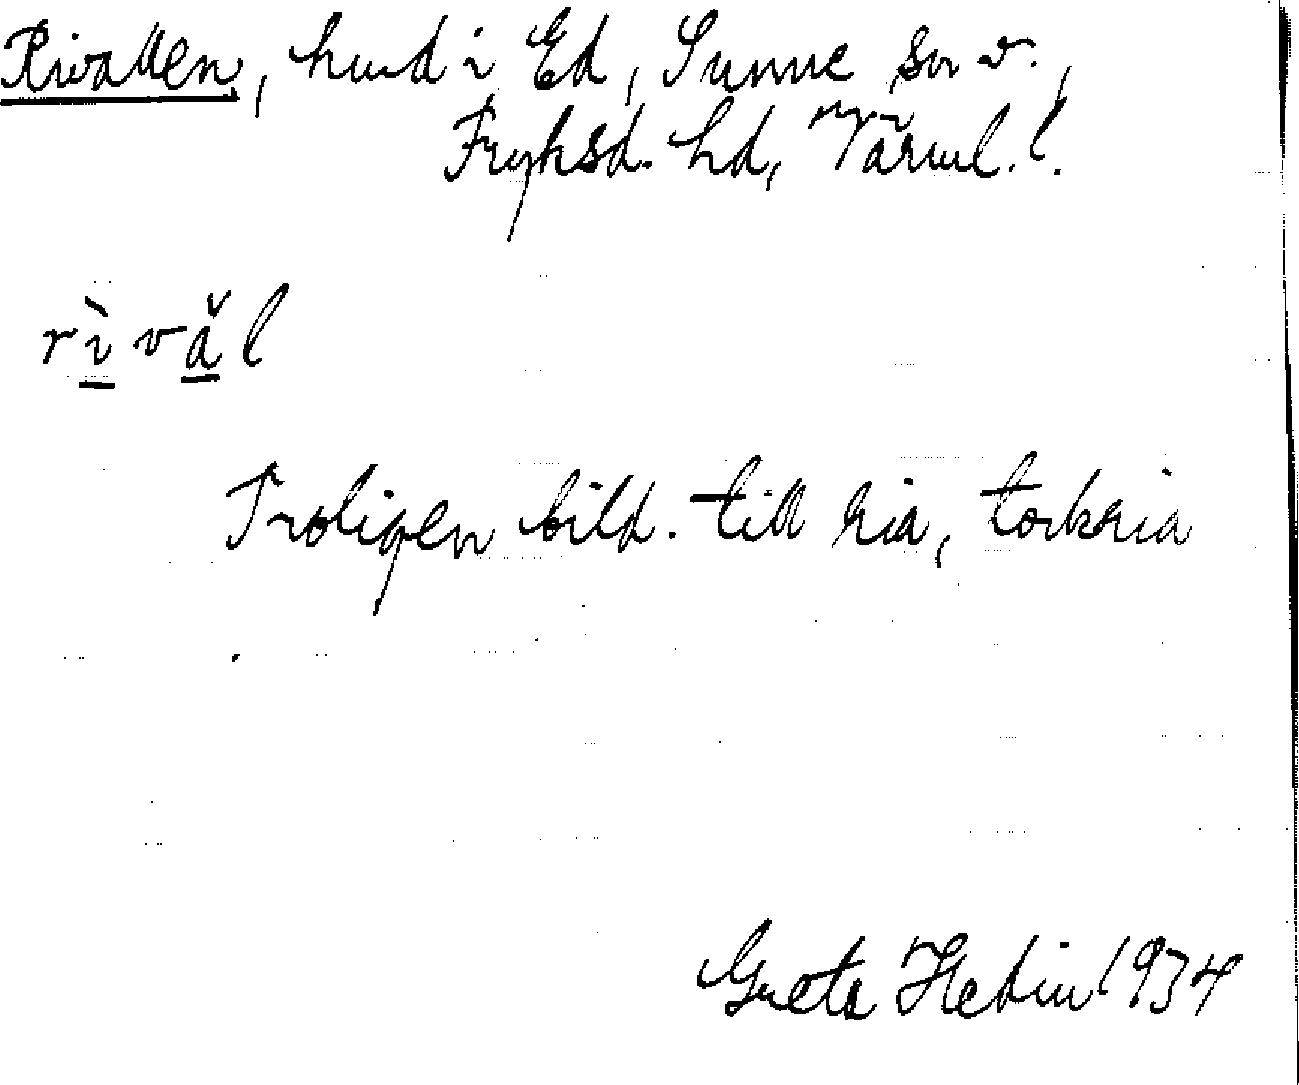 Rivallen, hund i Ed, Sunne sn v.,
Fryksd. hd, Värml. l.
rìvăl
Troligen bild. till ria, torkria
Greta Hedin 1934